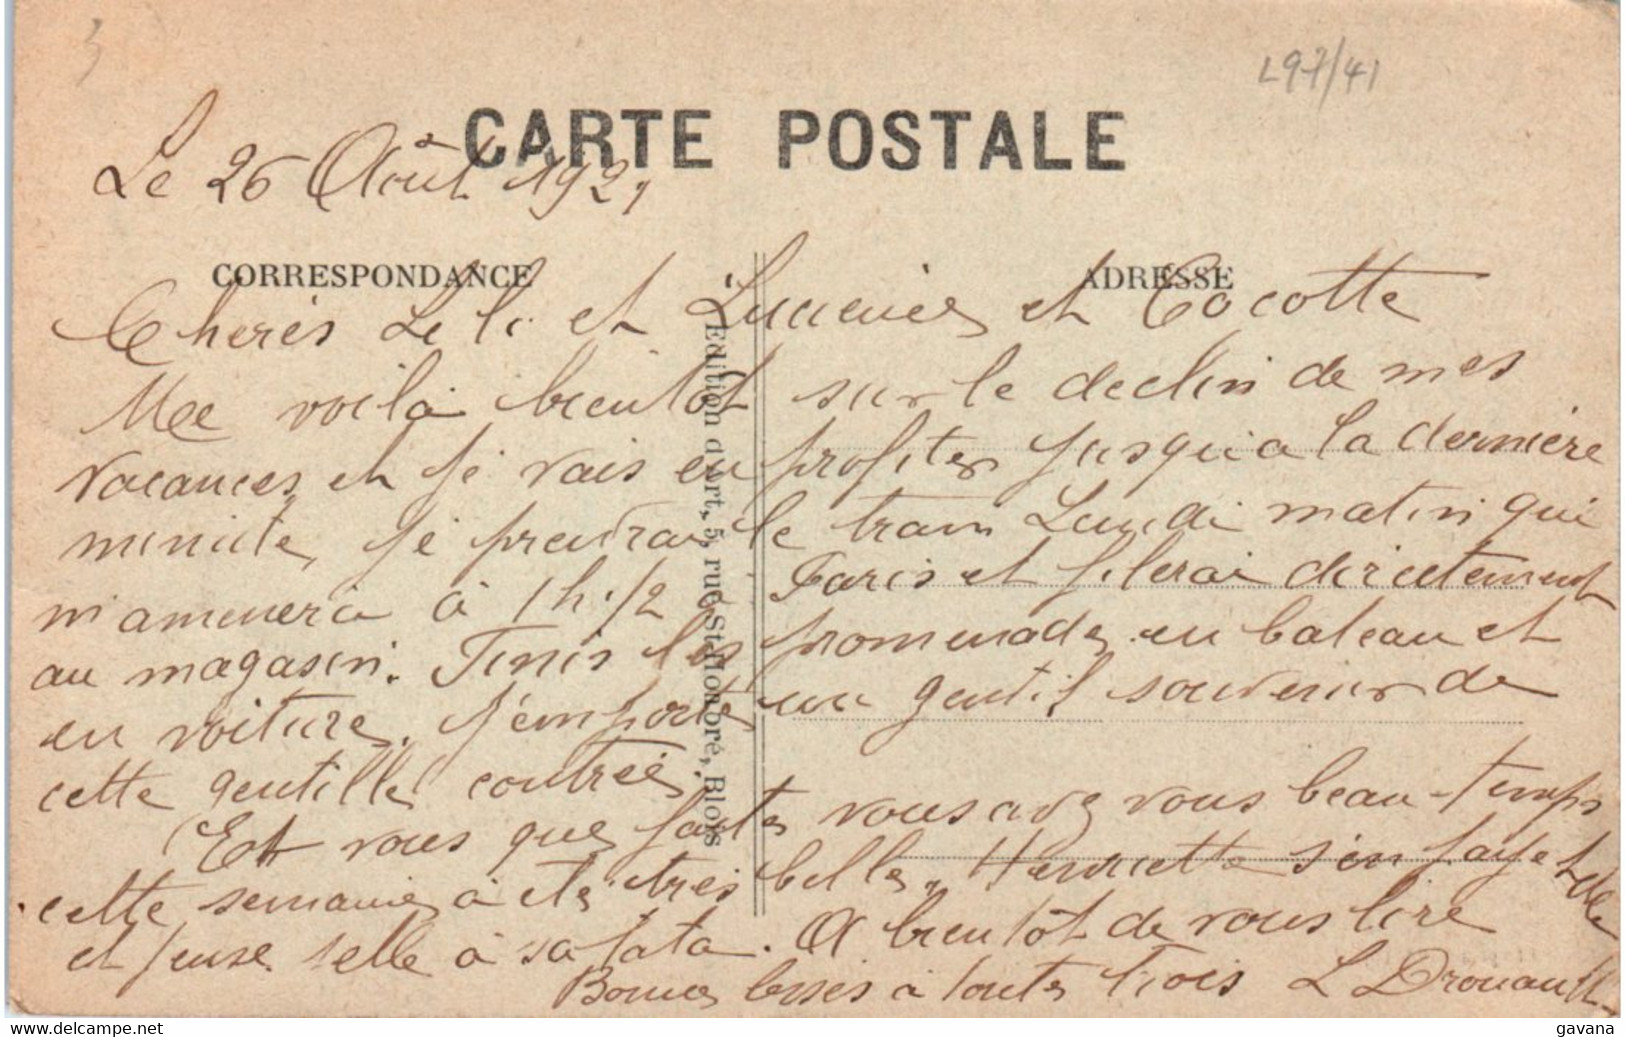 L 97/41
CARTE POSTALE
Le 26 Août 1921
CORRESPONDANCE
ADRESSE
Cheres Leli et Lucienne et Cocotte
Me voilà bientôt sur le declin de mes
vacances et je vais en profiter jusqu'a la derniere
minute, je prendrai le train Lundi matin qui
m'amenera à 1h. 1/2 Paris et filerai directement
au magasin. Finis les promenades en bateau et
en voiture. J'emporte un gentil souvenir de
cette gentille contrée.
Et vous que faites vous avez vous beau-temps
cette semaine à été tres belle. Henriette s'en paye
et pense t'elle à sa tata. A bientôt de vous lire
Bonnes à toutes trois L Drouault
Edition d'Art, 5, rue St-Honoré, Blois
gavana